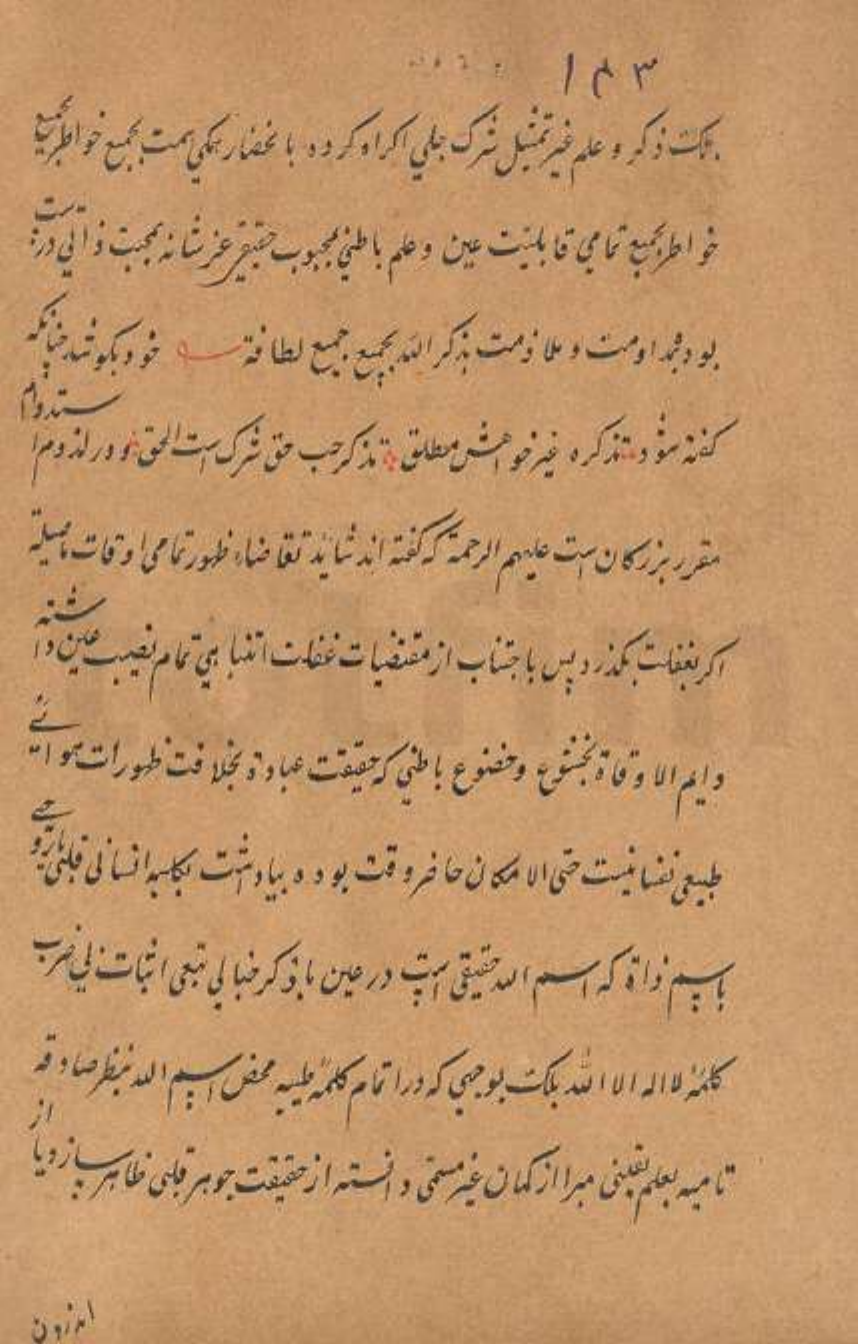 ۱۴۳
بلکہ ذکر و علم غیر تمثیل شرک جلی اکراه کرده با نحضار همکی همت بجمیع خواطر بجمیع
خواطر بجمیع تمامی قابلیت عین و علم باطنی بمحبوب حقیقی عز شانه بمحبت ذاتی درست
بود بمداومت و ملازمت بذکر الله بجمیع جمیع لطافة خود بکوشد چنانکه
کفته شود تذکره غیر خواهش مطلق تذکر حب حق شرک است الحق و در لزوم استدوام
مقرر بزرکان است علیهم الرحمة که کفته اند شاید تقاضاء ظهور تمامی اوقات
اکر بغفلت بگذرد پس باجتناب از مقتضیات غفلت انتباهی تمام نصیب عین داشته
دایم الاوقاة بخشوع و خضوع باطنی که حقیقت عبادة بخلافت ظهورات هوائے
طبیعی نفسانیست حتی الامکان حاضر وقت بوده بیاد داشت بکاسبه انسانی قلبی
باسم ذاة که اسم الله حقیقی است در عین با ذکر خیالی نفی اثبات ضرب
کلمۂ لا اله الا الله بلکہ بوجهی که در اتمام کلمۂ طیبه محض اسم الله بنظر صادقه
تامیه بعلم یقینی مبرا از کمان غیر مسمی دانسته از حقیقت جوهر قلبی ظاهر سازد یا از
اندرون